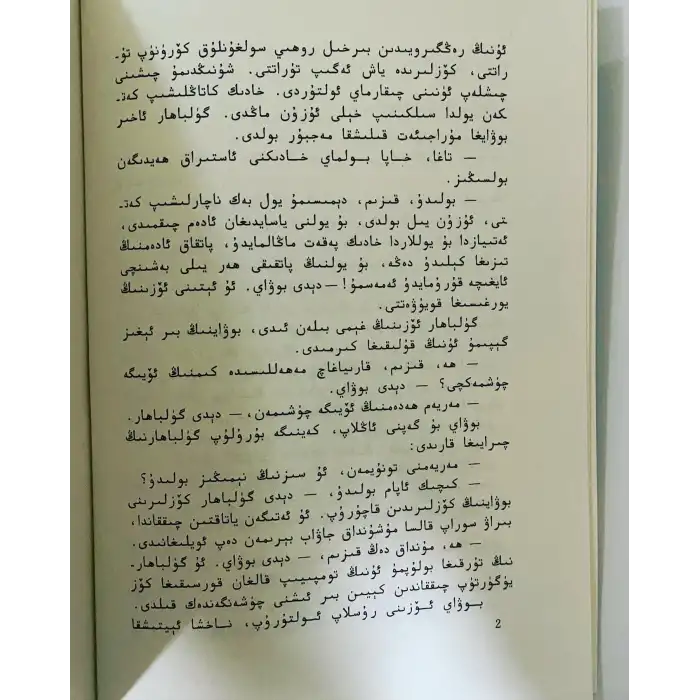 ئۇنىڭ رەڭگىرويىدىن بىرخىل روھىي سولغۇنلۇق كۆرۈنۈپ تۇ-
راتتى، كۆزلىرىدە ياش ئەگىپ تۇراتتى. شۇنىڭدىمۇ چىشىنى
چىشلەپ ئۈنىنى چىقارماي ئولتۇردى. خادىك كاتاڭلىشىپ كەت-
كەن يولدا سىلكىنىپ خېلى ئۇزۇن ماڭدى. گۈلباھار ئاخىر
بوۋايغا مۇراجىئەت قىلىشقا مەجبۇر بولدى.
— تاغا، خاپا بولماي خادىكنى ئاستىراق ھەيدىگەن
بولسىڭىز.
— بولىدۇ، قىزىم، دېمىسىمۇ يول بەك ناچارلىشىپ كەت-
تى، ئۇزۇن يىل بولدى، بۇ يولنى ياسايدىغان ئادەم چىقمىدى،
ئەتىيازدا بۇ يوللاردا خادىك پەقەت ماڭالمايدۇ، پاتقاق ئادەمنىڭ
تىزىغا كېلىدۇ دەڭە، بۇ يولنىڭ پاتقىقى ھەر يىلى بەشىنچى
ئايغىچە قۇرۇمايدۇ ئەمەسمۇ! — دېدى بوۋاي. ئۇ ئېتىنى ئۆزىنىڭ
يورغىسىغا قويۇۋەتتى.
گۈلباھار ئۆزىنىڭ غېمى بىلەن ئىدى، بوۋاينىڭ بىر ئېغىز
گېپىمۇ ئۇنىڭ قۇلىقىغا كىرمىدى.
— ھە، قىزىم، قارىياغاچ مەھەللىسىدە كىمنىڭ ئۆيىگە
چۈشمەكچى؟ — دېدى بوۋاي.
— مەريەم ھەدەمنىڭ ئۆيىگە چۈشىمەن، — دېدى گۈلباھار.
بوۋاي بۇ گەپنى ئاڭلاپ، كەينىگە بۇرۇلۇپ گۈلباھارنىڭ
چىرايىغا قارىدى:
— مەريەمنى تونۇيمەن، ئۇ سىزنىڭ نېمىڭىز بولىدۇ؟
— كىچىك ئاپام بولىدۇ، — دېدى گۈلباھار كۆزلىرىنى
بوۋاينىڭ كۆزلىرىدىن قاچۇرۇپ. ئۇ ئەتىگەن ياتاقتىن چىققاندا،
بىراۋ سوراپ قالسا مۇشۇنداق جاۋاب بېرىمەن دەپ ئويلىغانىدى.
— ھە، مۇنداق دەڭ قىزىم، — دېدى بوۋاي. ئۇ گۈلباھار-
نىڭ تۇرقىغا بولۇپمۇ ئۇنىڭ تومپىيىپ قالغان قورسىقىغا كۆز
يۈگۈرتۈپ چىققاندىن كېيىن بىر ئىشنى چۈشەنگەندەك قىلدى.
بوۋاي ئۆزىنى رۇسلاپ ئولتۇرۇپ، ناخشا ئېيتىشقا
2